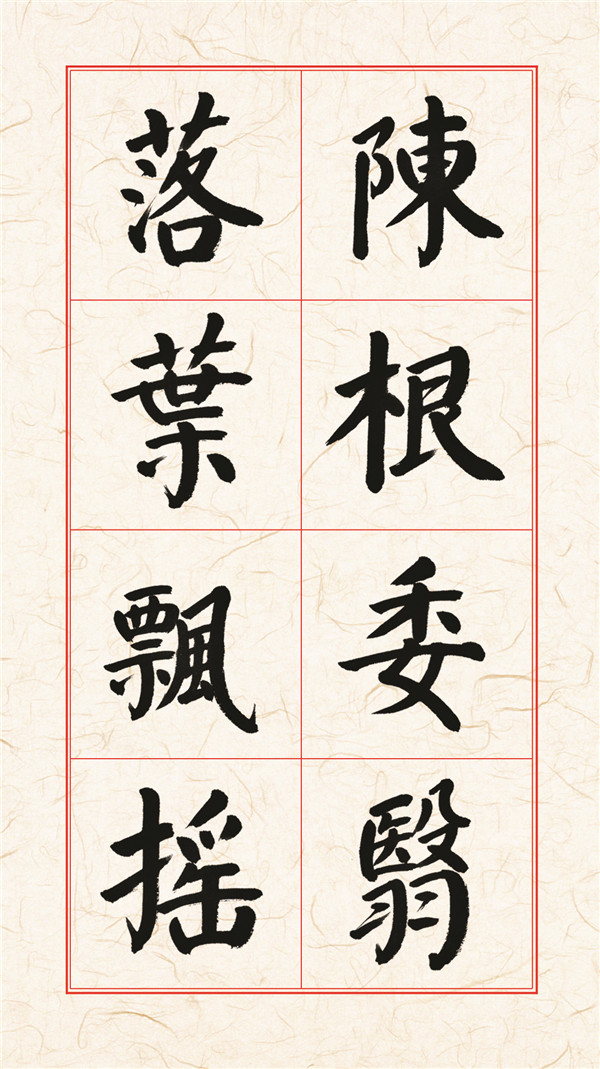 陳根委翳
落葉飄摇